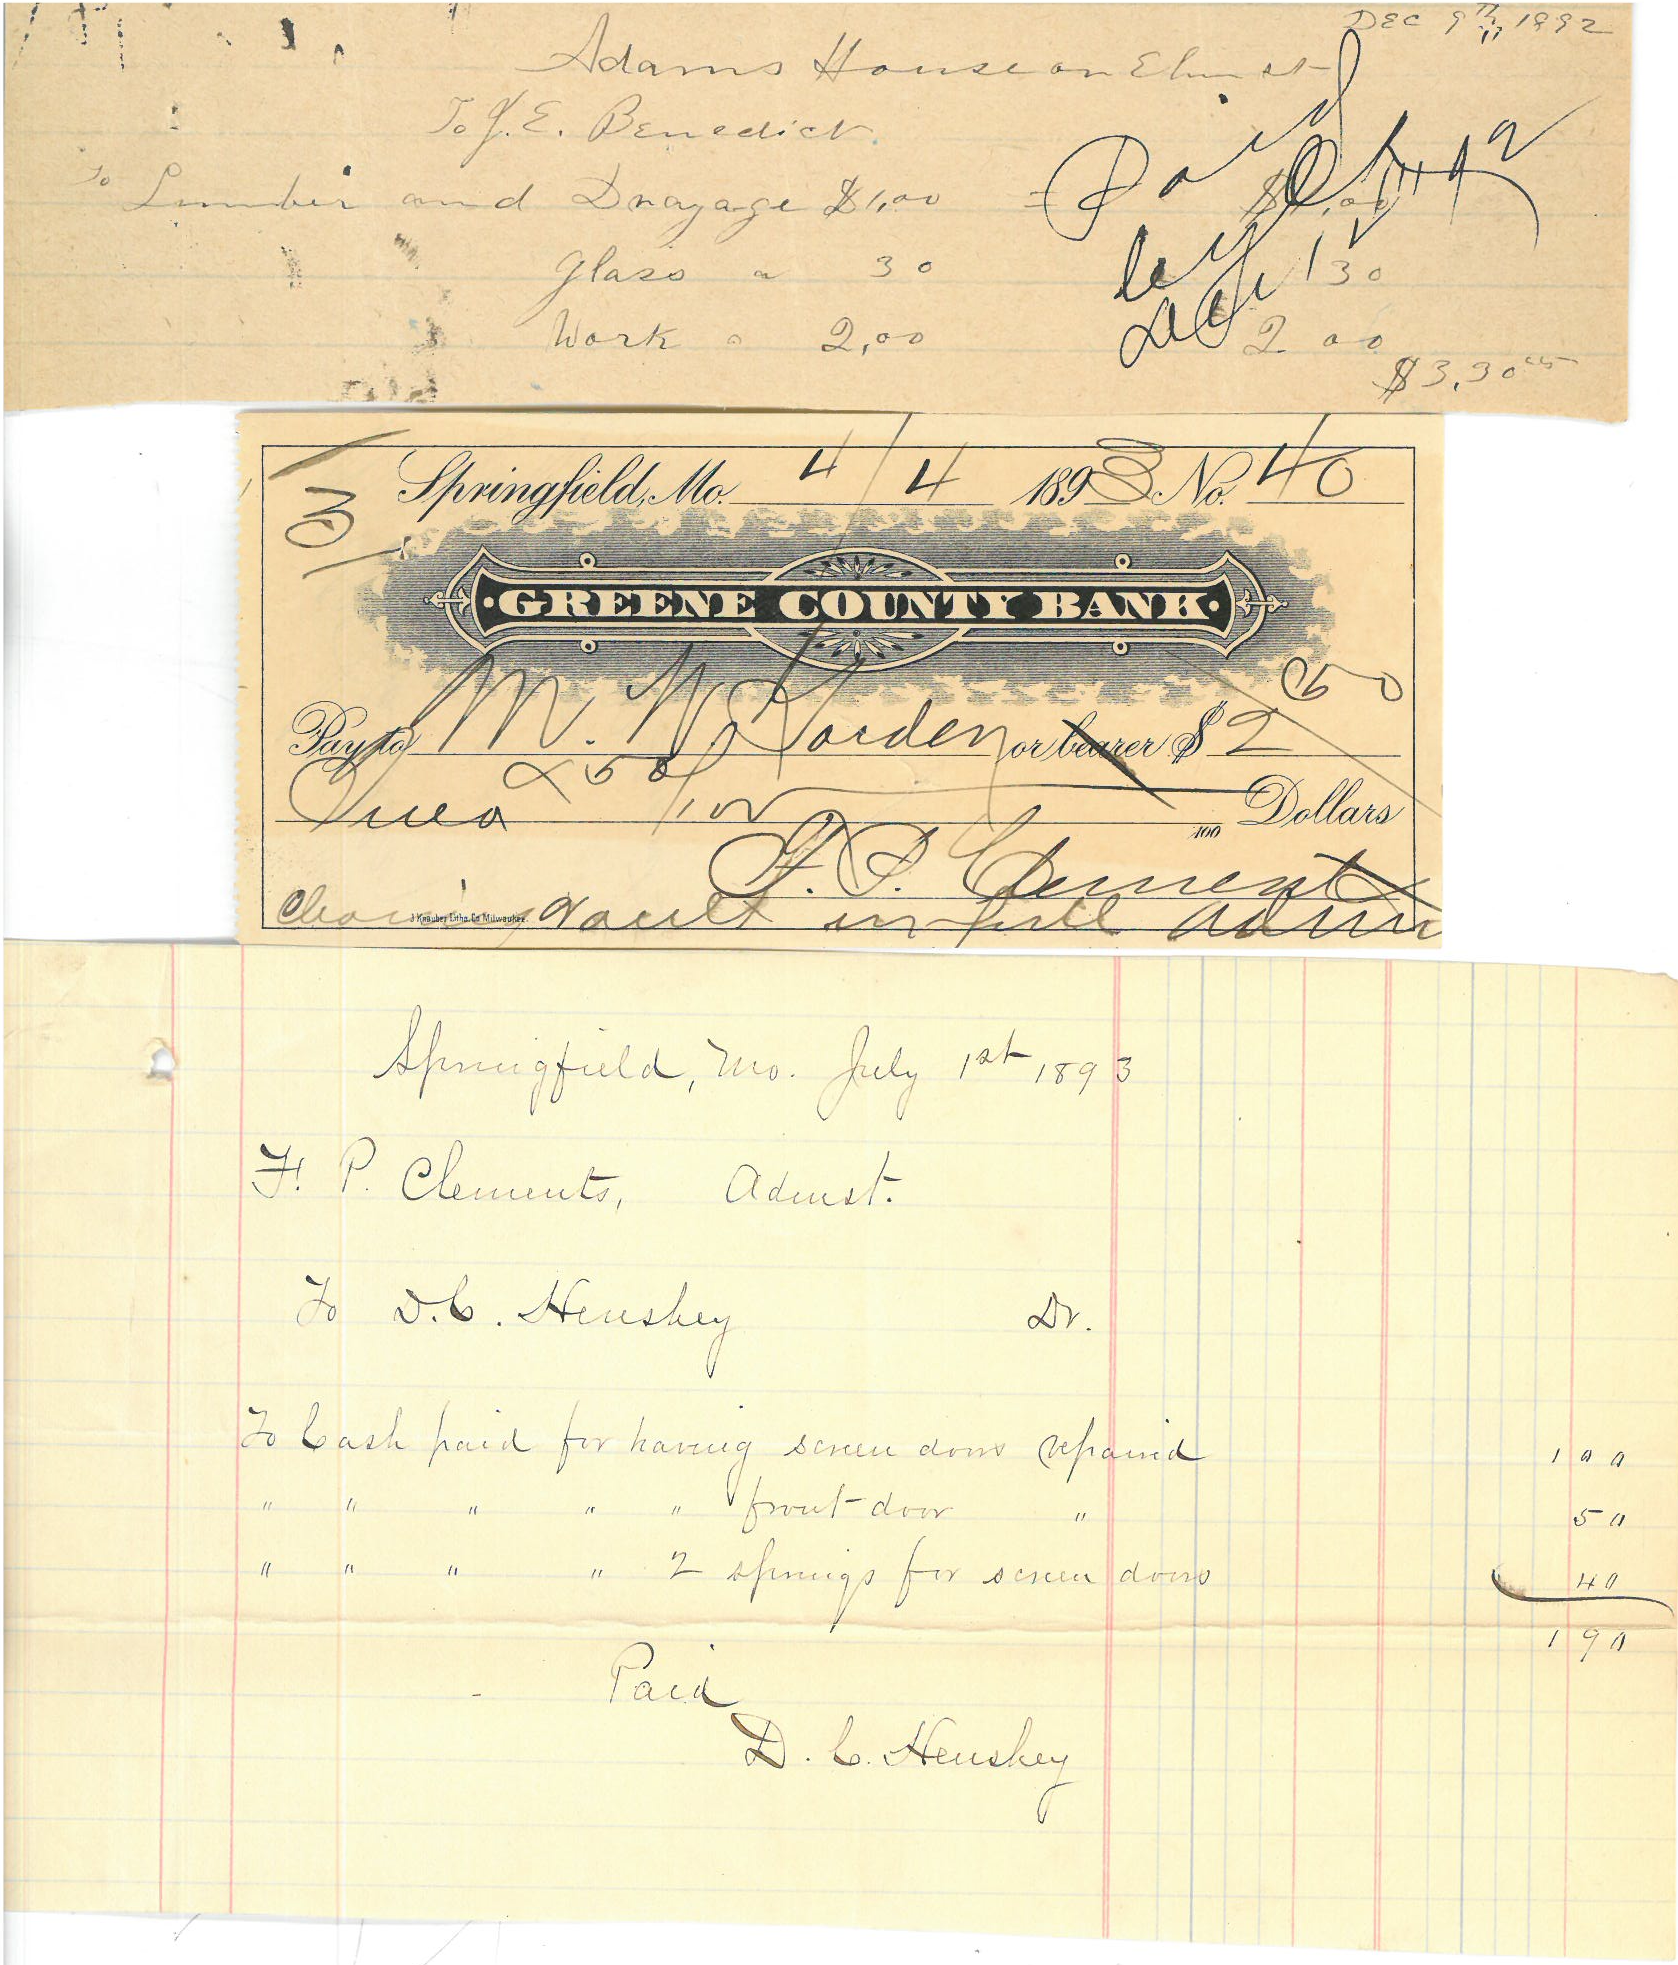 DEC 9th, 1892
Adams House on Elm st
To J. E. Benedict
To Lumber and Drayage $1,00 = $1,00
Glass " 30 30
Work " 2,00 2 00
$3,30cts
Paid
by ck
Springfield, Mo. 4/4 1893 No. 40
GREENE COUNTY BANK
Pay to M. W. Horden or bearer $2 50
Two & 50/100 100 Dollars
F. P. Clement
J Knauber Litho. Co Milwaukee.
cleaning vault in full admr
Springfield, Mo. July 1st 1893
F. P. Clements, Admst.
To D. C. Henshey Dr.
To Cash paid for having screen doors repaired 1 00
" " " " " front door " 50
" " " " 2 springs for screen doors 40
1 90
Paid
D. C. Henshey